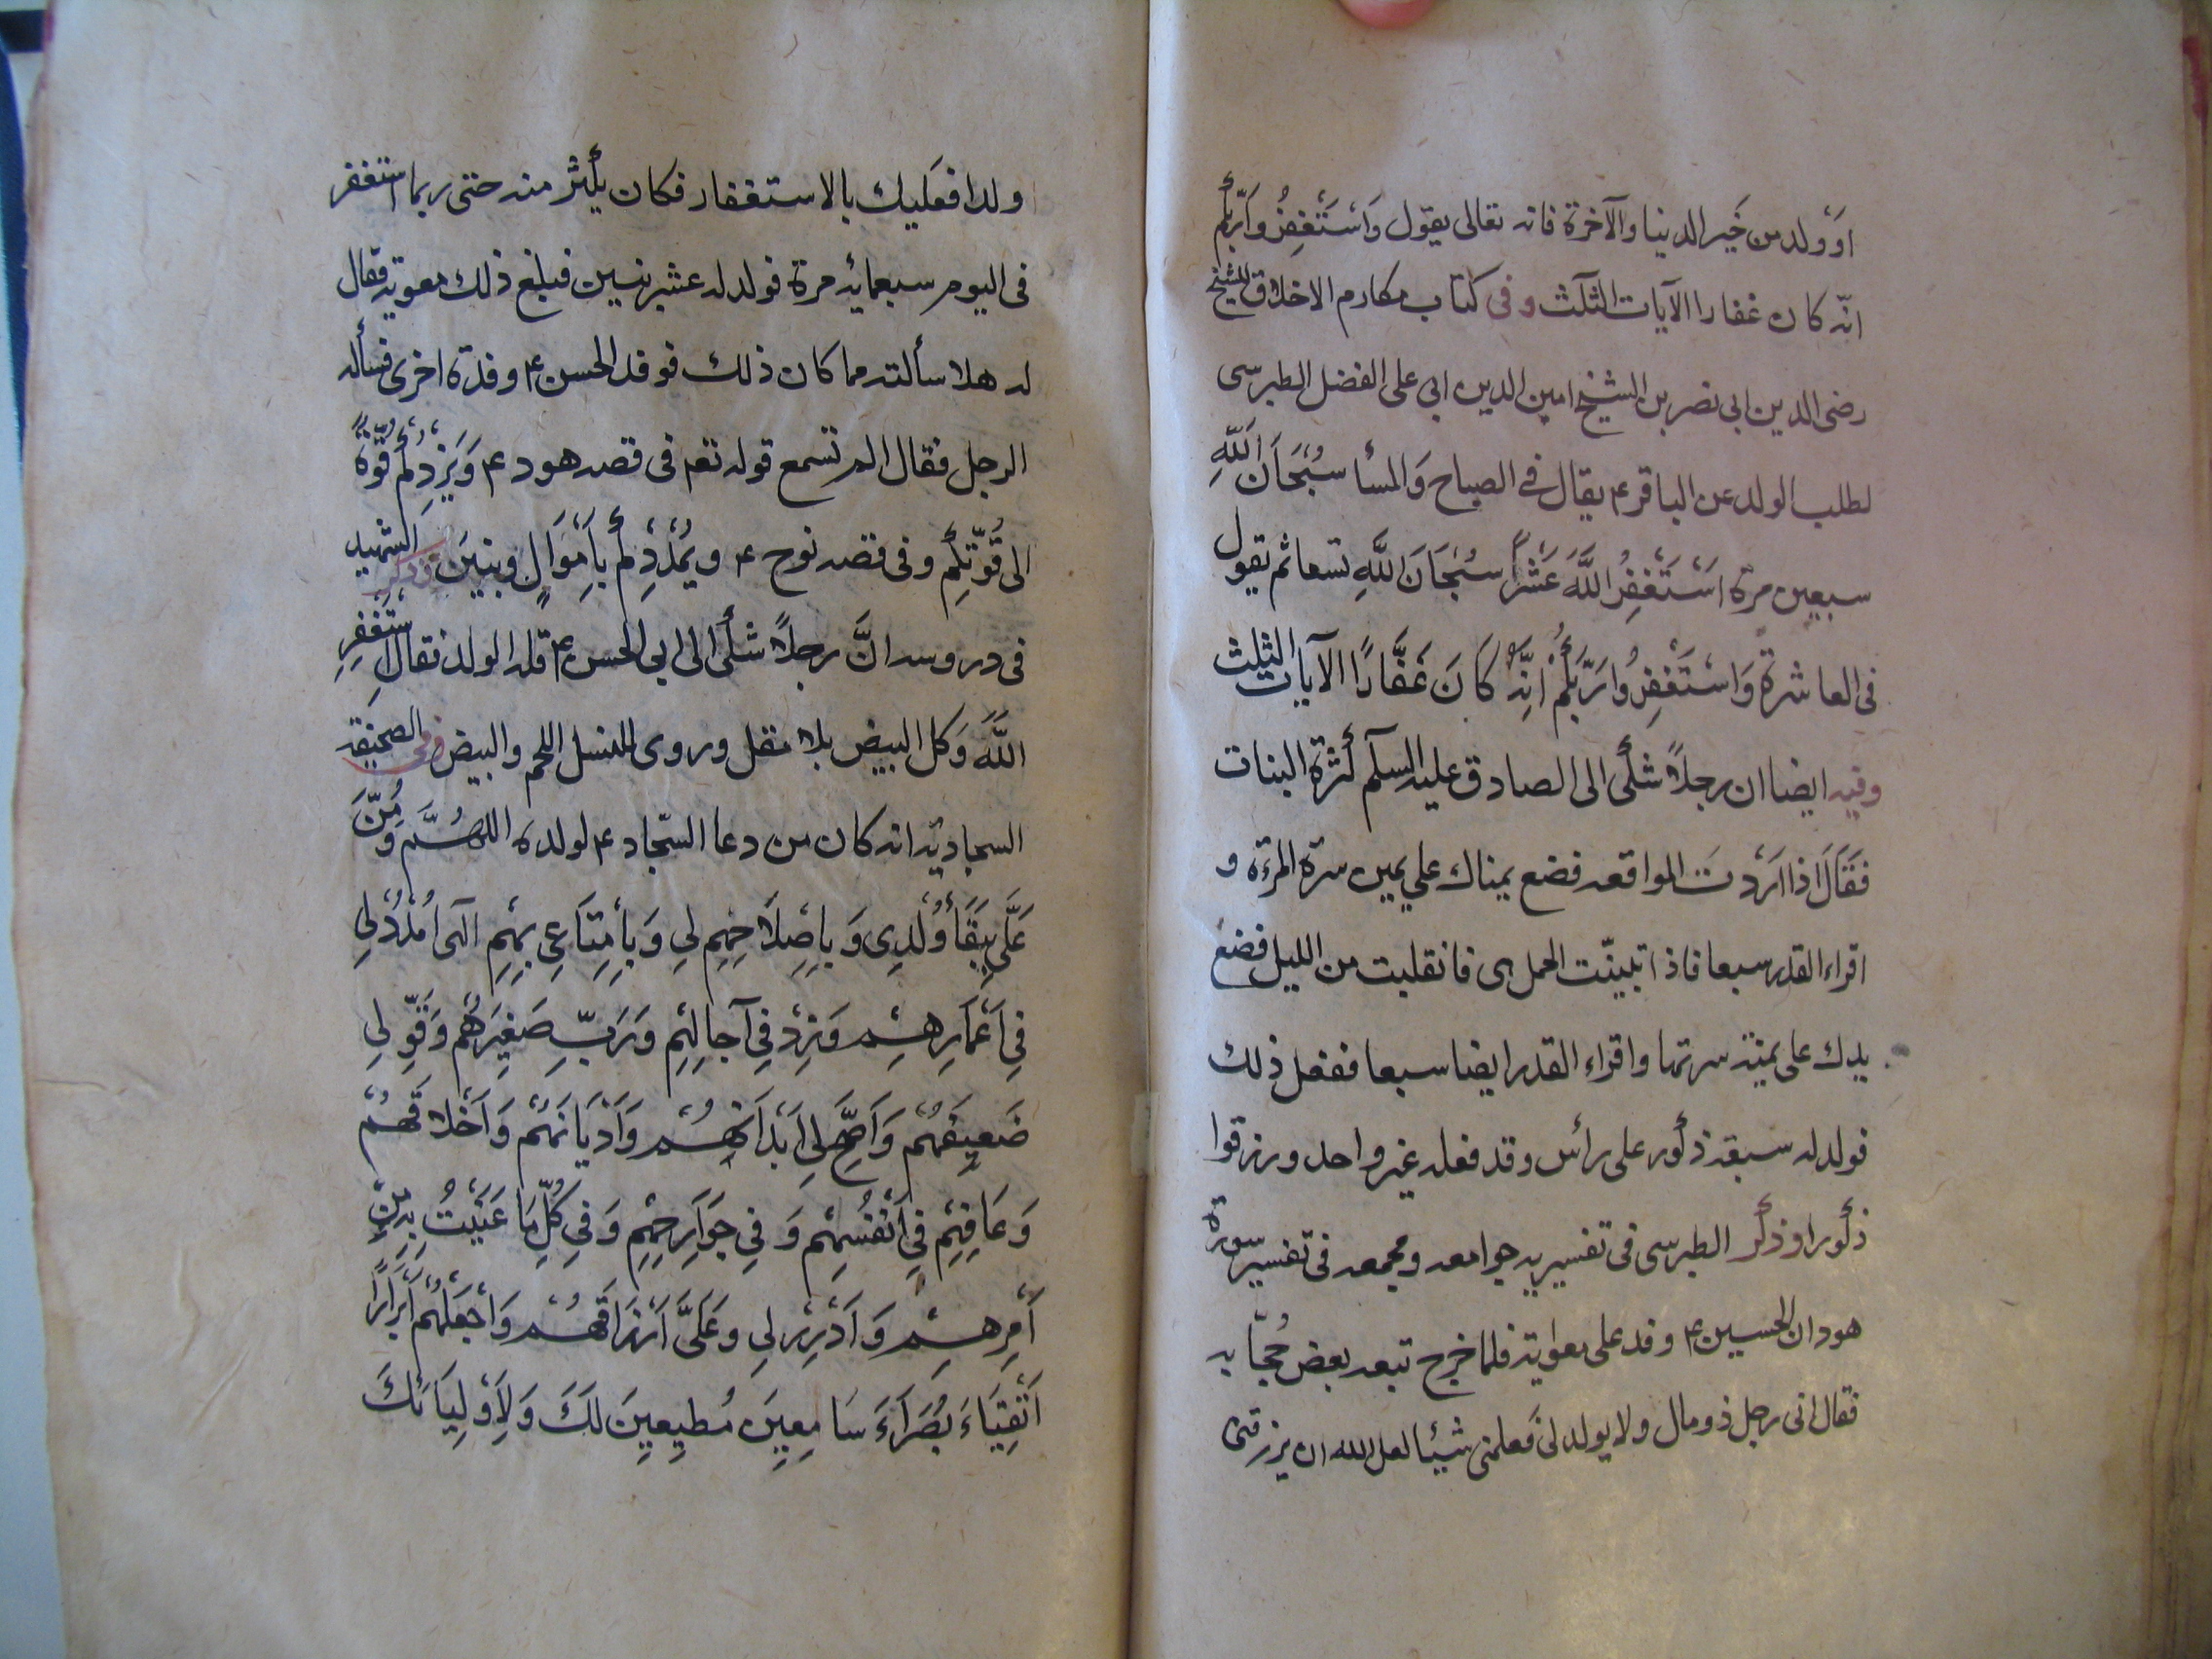 او ولد من خَير الدينا والآخرة فانه تعالى يقول وَاسْتَغْفِرُوا رَبَّكُم
انّه كان غفارا الآيات الثلث وفى كتاب مكارم الاخلاق للشيخ
رضى الدين ابى نصر بن الشيخ امين الدين ابى على الفضل الطبرسى
لطلب الولد عن الباقر ع يقال في الصباح وَالمسأ سُبْحَانَ اللَّهِ
سبعين مرة اَسْتَغْفِرُ اللَّهَ عَشْراً سُبْحَانَ اللَّهِ تسعا ثم يقول
فى العاشرة وَاسْتَغْفِرُوا رَبَّكُمْ اِنَّهُ كَانَ غَفَّارًا الآيات الثلث
وفيه ايضا ان رجلاً شكى الى الصادق عليه السلم كثرة البنات
فَقَالَ اذا اَرَدْتَ المواقعه فضع يمناك على يمين سرة المرءة و
اقراء القدر سبعا فاذا تبينّت الحمل بى فانقلبت من الليل فضع
يدك على يمينه سرتها واقراء القدر ايضا سبعا ففعل ذلك
فولد له سبعة ذكور على رأس وقد فعله غير واحد ورزقوا
ذكورا وذكر الطبرسى فى تفسيريه جوامعه ومجمعه فى تفسير سورة
هود ان الحسين ع وفد على معاوية فلما خرج تبعه بعض حُجّابه
فقال انى رجل ذو مال ولا يولد لى فعلمنى شيئا لعل الله ان يرزقنى
ولدا فعَليك بالاستغفار فكان يكثر منه حتى ربما استغفر
فى اليوم سبعمائه مرة فولد له عشر بنين فبلغ ذلك معوية فقال
له هلا سألته مما كان ذلك فوفد الحسن ع وفدة اخرى فسأله
الرجل فقال الم تسمع قوله تعم فى قصه هود ع وَيَزِدْكُمْ قُوَّةً
الى قُوَّتِكُم وفى قصه نوح ع ويُمْدِدْكُمْ بأَمْوَالٍ وبنينَ وذكر الشهيد
فى دروسه انَّ رجلاً شكى الى ابى الحسن ع قلة الولد فقال اِسْتَغْفِرِ
اللَّهَ وَكل البيض بلا مقل وروى للنسل اللحم والبيض وفى الصحيفة
السجادية انه كان من دعا السّجاد ع لولده اللهُمَّ وَمُنَّ
عَلَىَّ بِبَقَأ وُلْدِى وَبِاِصْلَاحِهِم لِى وَبِأِمْتَاعِى بِهِم آلهى اُمْدُدْ لِى
فِى اَعْمَارِهِمْ وَزِدْ فِى آجالِهِمْ وَرَبِّ صَغِيرَهُم وَقَوِّ لِى
ضَعِيفَهُم وَاَصِحَّ لى اَبْدَانَهُمْ وَاَدْيَانَهُمْ وَاَخْلاقَهُمْ
وَعَافِهِمْ فِى اَنْفُسِهِم وَفِى جَوَارِحِهِم وَفِى كُلِّ مَا عَنَيْتُ بِه مِنْ
أَمْرِهِمْ وَاَدْرِرْ لِى وعَلَىَّ اَرْزَاقَهُمْ وَاجْعَلْهُم اَبْرَارًا
اَتْقِيَاءَ بُصَرَاءَ سَامِعِينَ مُطِيعِينَ لَكَ وَلِأَوْلِيَائكَ